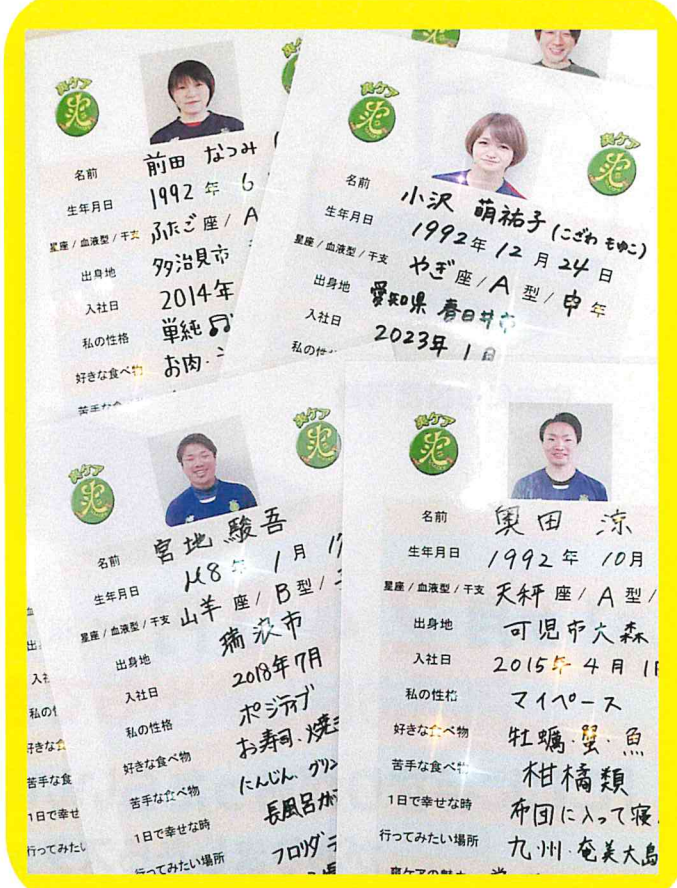 爽ケア
名前 前田 なつみ (
生年月日 1992年 6
星座/血液型/干支 ふたご座/A
出身地 多治見市
入社日 2014年
私の性格 単純
好きな食べ物 お肉・
苦手な
爽ケア
爽ケア
名前 小沢 萌祐子(こざわ もゆこ)
生年月日 1992年12月24日
星座/血液型/干支 やぎ座/A型/申年
出身地 愛知県 春日井市
入社日 2023年 1月
私の性
爽ケア
爽ケア
名前 宮地 駿吾
生年月日 H8年 1月 17
星座/血液型/干支 山羊座/B型/
出身地 瑞浪市
入社日 2018年7月
私の性格 ポジティブ
好きな食べ物 お寿司、焼
苦手な食べ物 にんじん、グリン
1日で幸せな時 長風呂が
行ってみたい場所 フロリダ
爽ケア
名前 奥田 涼
生年月日 1992年 10月
星座/血液型/干支 天秤座/A型/
出身地 可児市大森
入社日 2015年4月1日
私の性格 マイペース
好きな食べ物 牡蠣・蟹・魚
苦手な食べ物 柑橘類
1日で幸せな時 布団に入って寝
行ってみたい場所 九州・奄美大島
爽ケアの魅力
出
入社
私の性
好きな食
苦手な食
1日で幸せ
行ってみたい